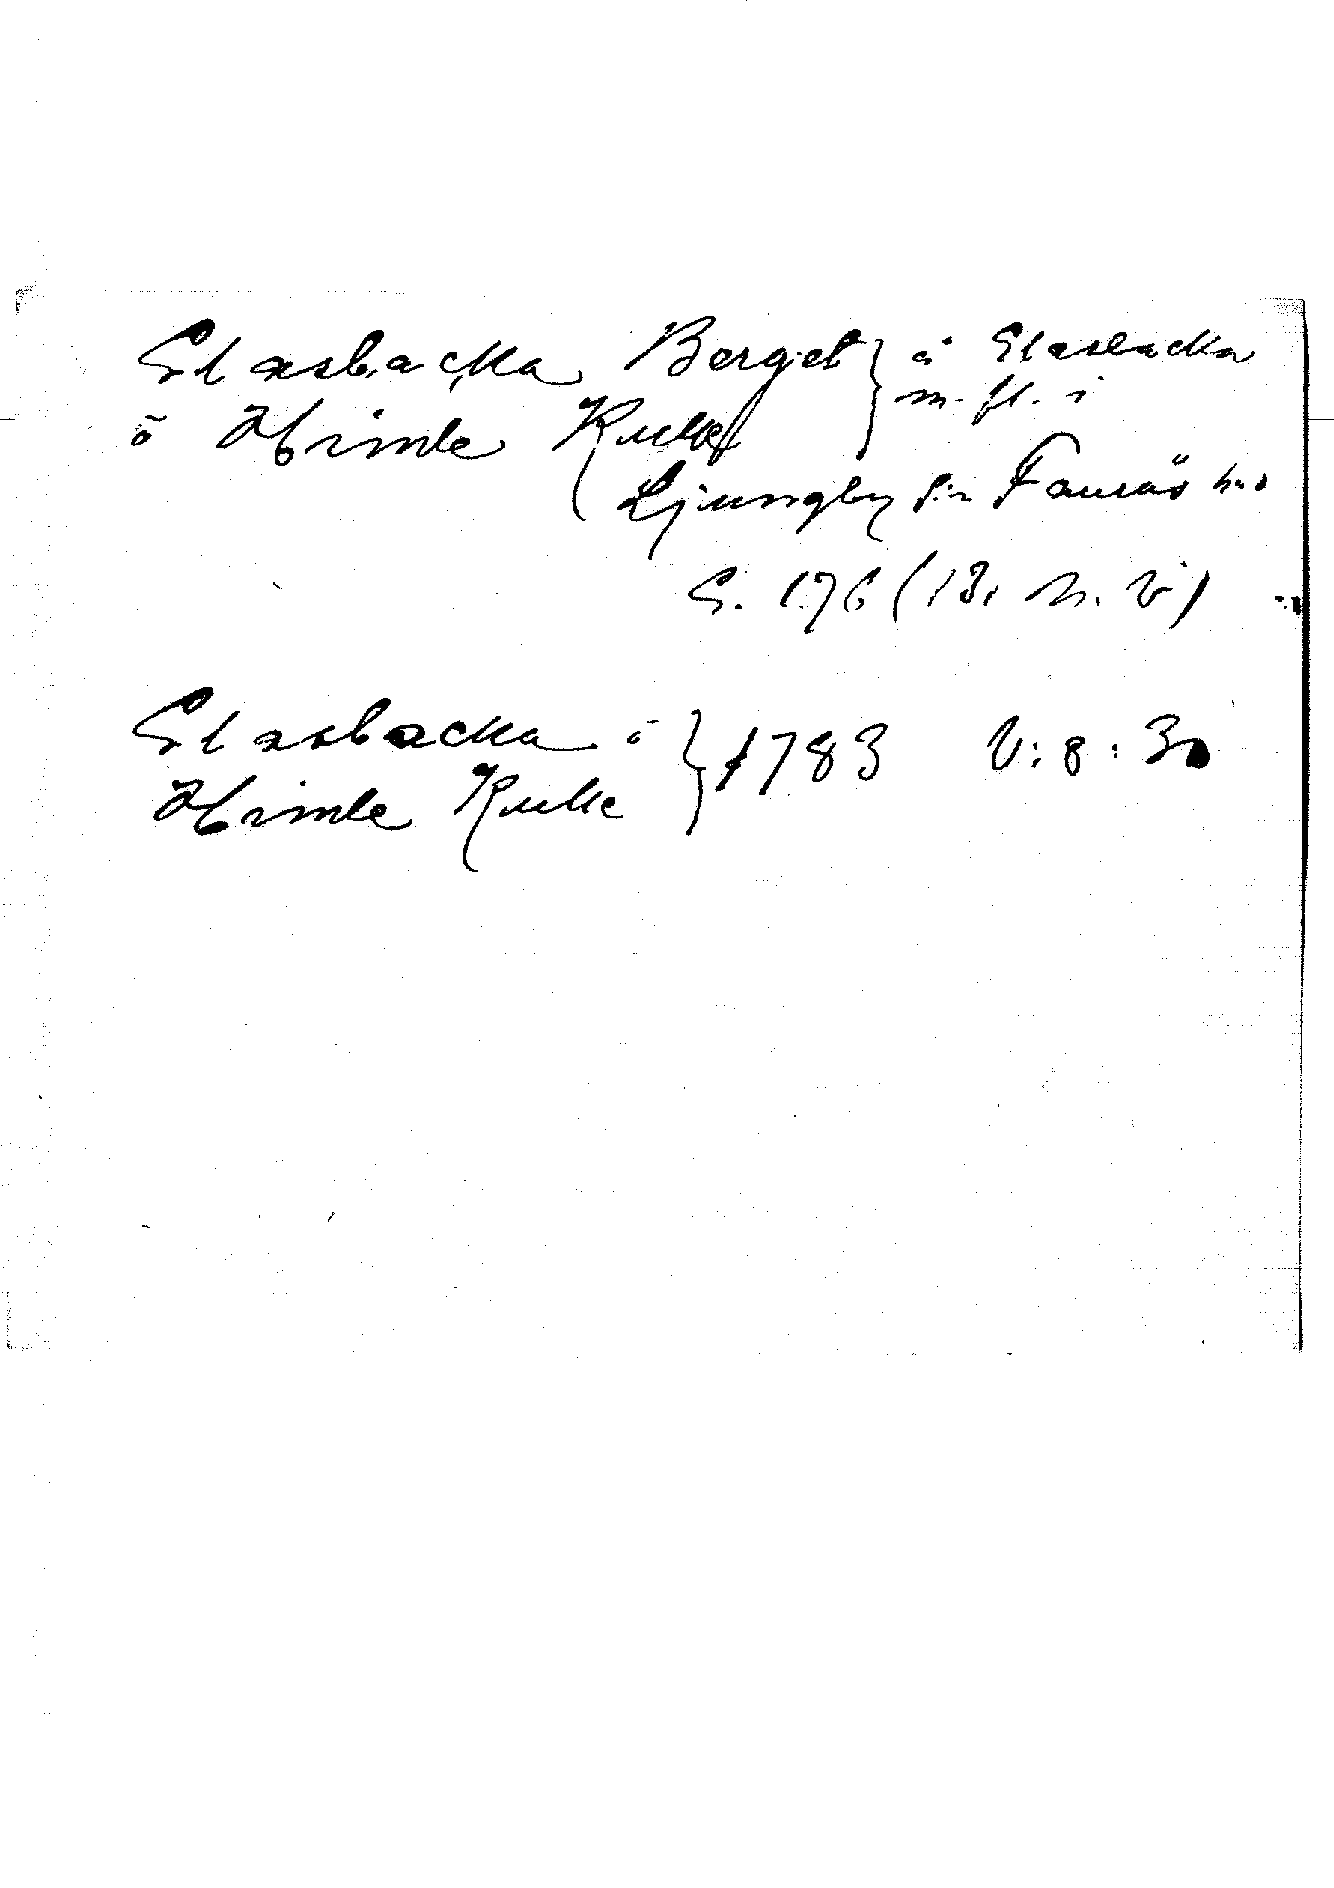 Glasbacka Berget } å Glasbacka
m. fl. i
o Himle Kulle
Ljungby s:n Faurås h:d
G. 176 (131 N. V)
Glasbacka o } 1783 V: 8: 30
Himle Kulle